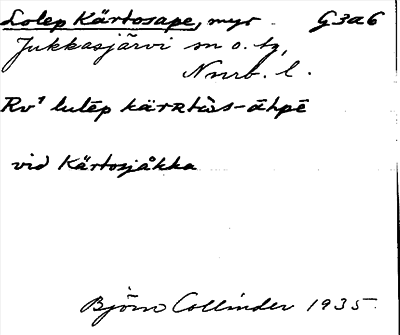 Lolep Kärtosape, myr. G3a6
Jukkasjärvi sn o. tg,
Nnrb. l.
Rv¹ lulēp kärrtùs-āhpē
vid Kärtosjåkka
Björn Collinder 1935